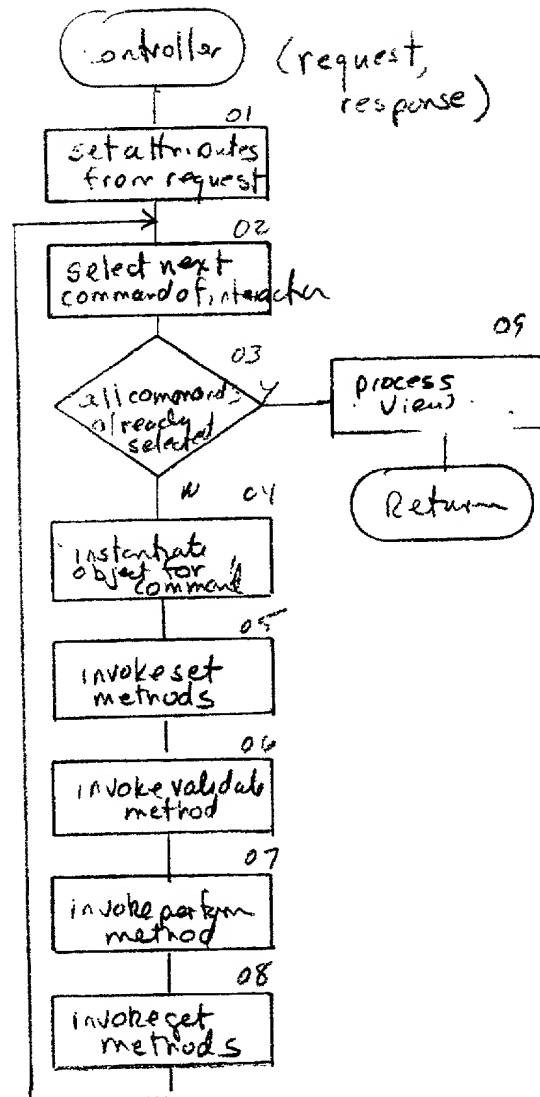 controller
(request,
response)
01
set attributes
from request
02
select next
command of interaction
03
all commands
already
selected
Y
09
process
view
Return
N
04
instantiate
object for
command
05
invoke set
methods
06
invoke validate
method
07
invoke perform
method
08
invoke get
methods